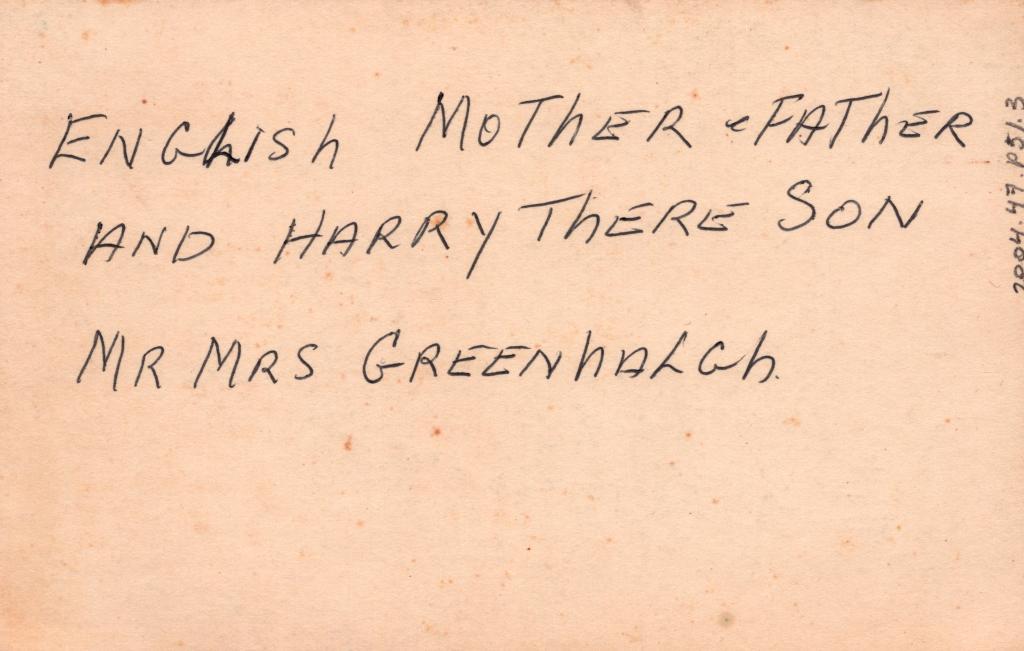 ENGLISh MOThER & FAThER
AND HARRY ThERE SON
MR MRS GREENhALGh.
2004.47.P51.3